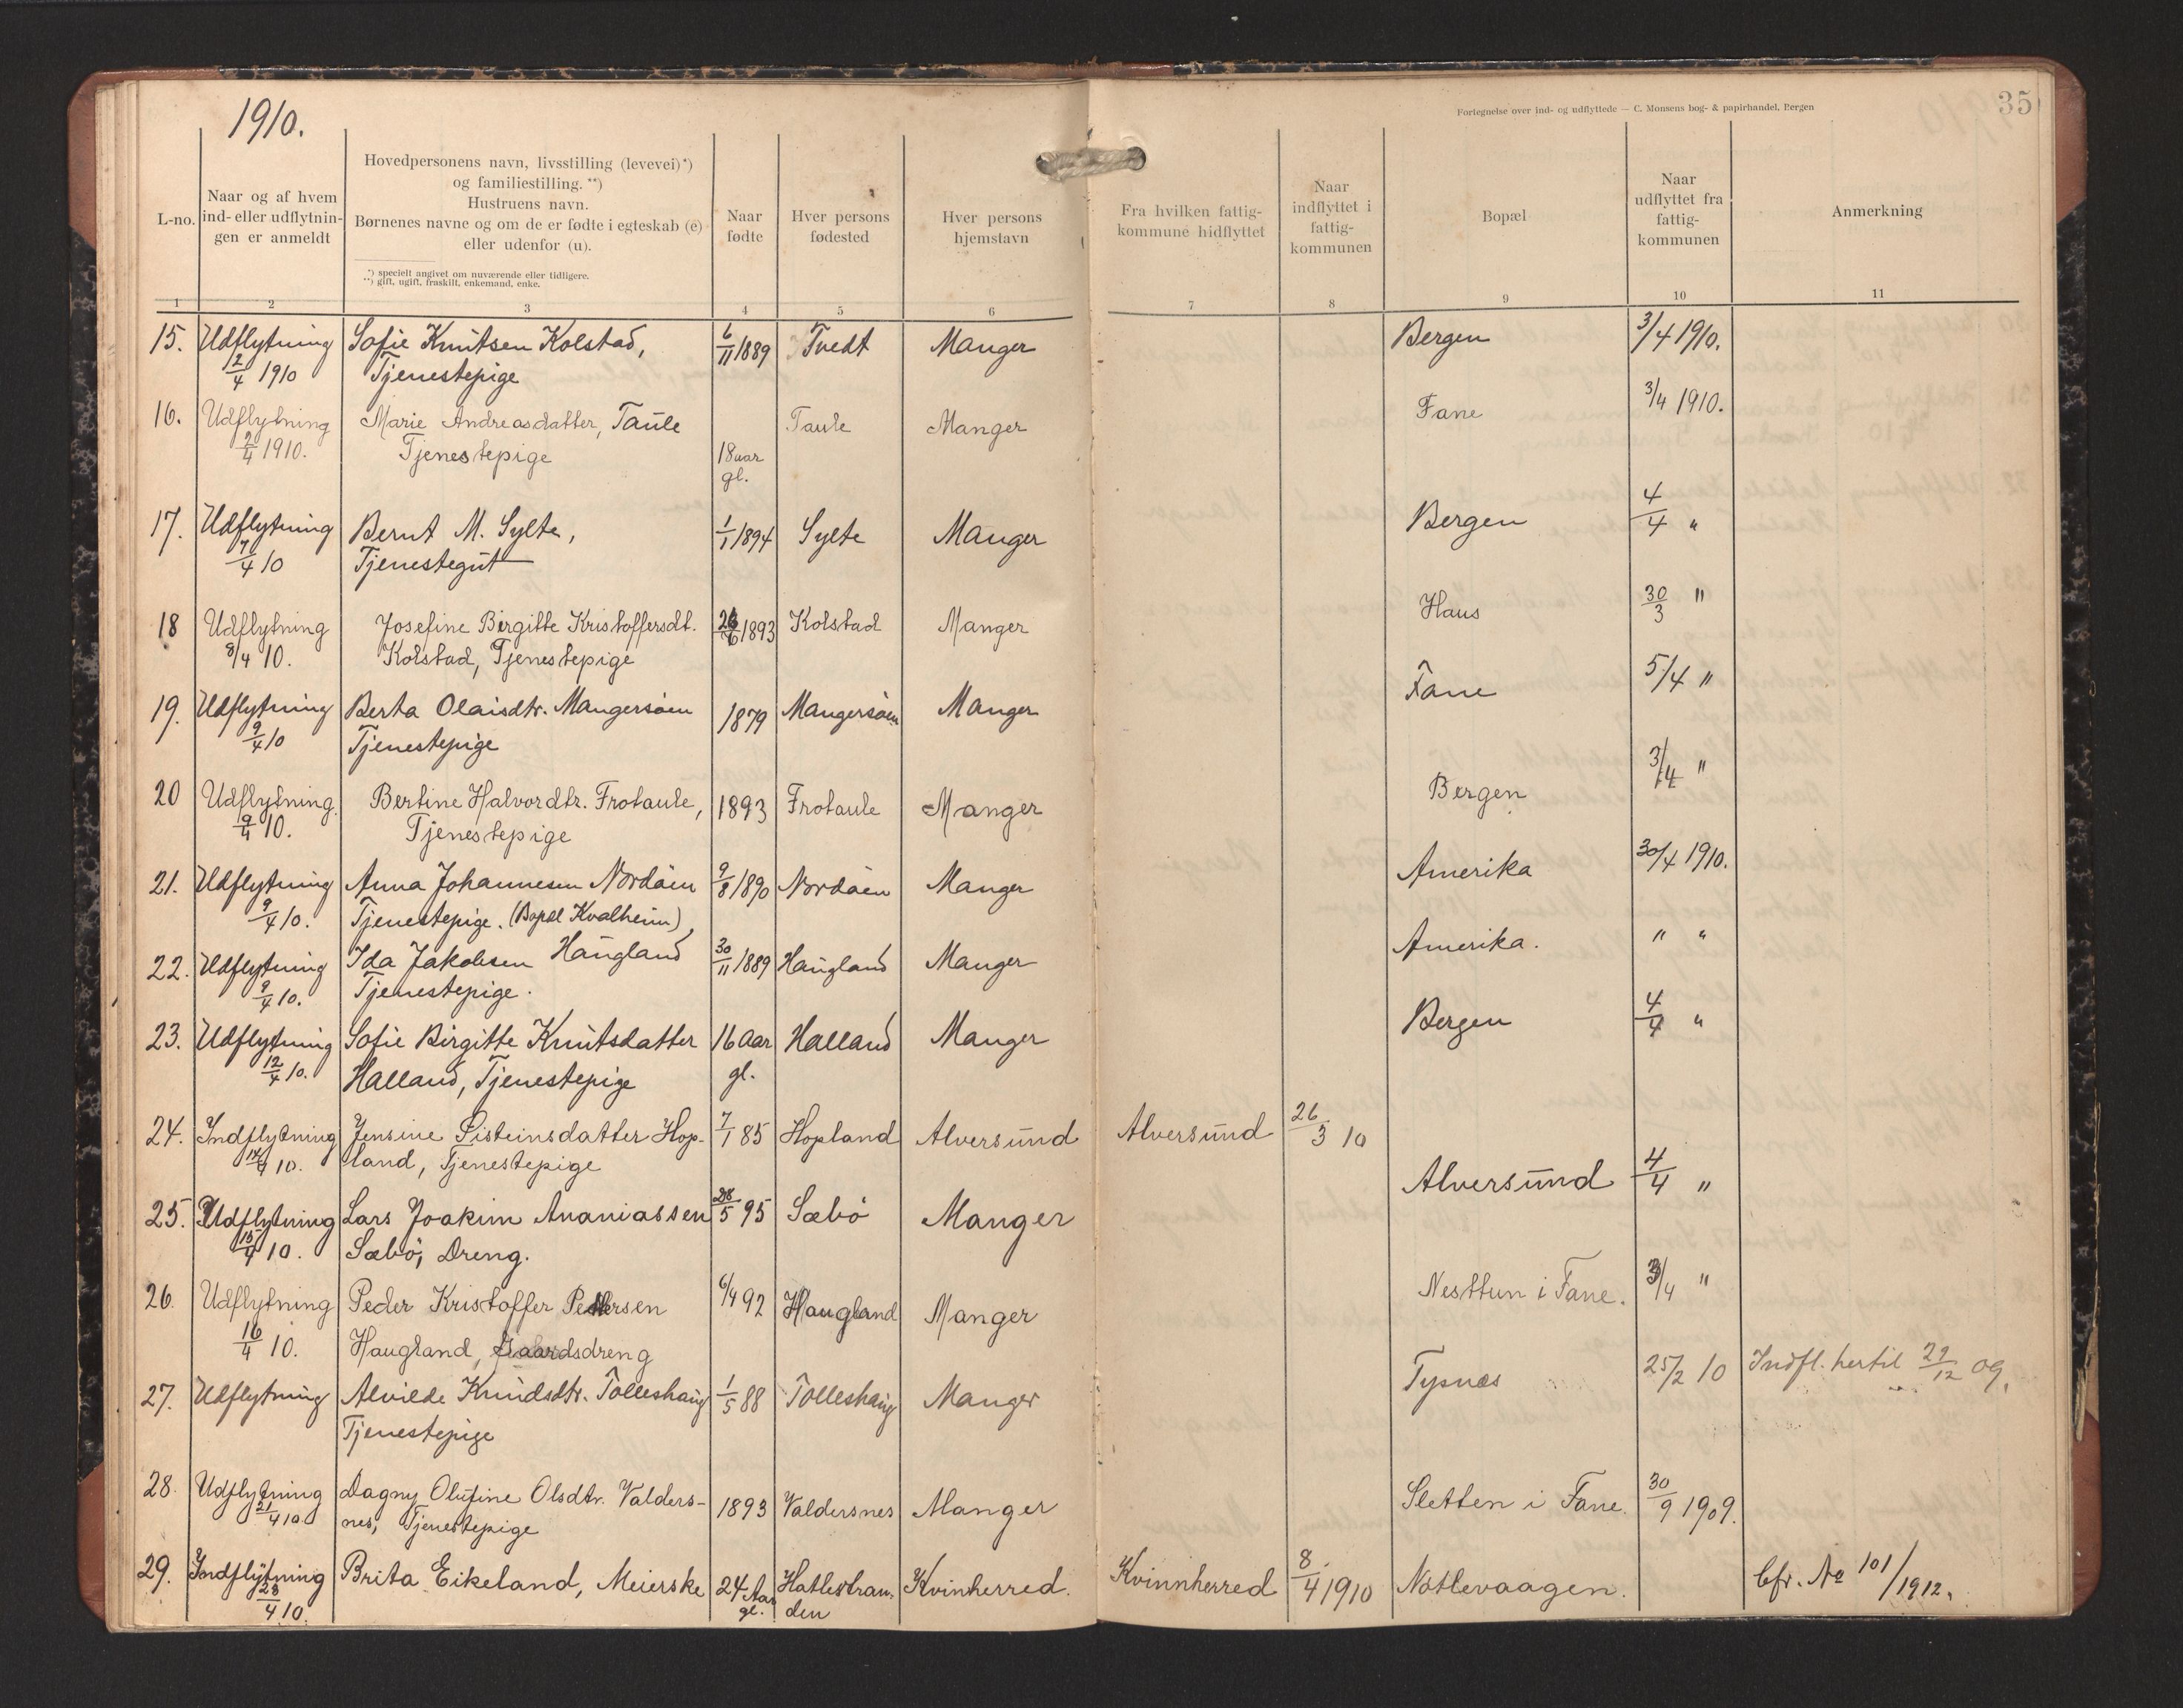 1910.
Fortegnelse over ind- og udflyttede — C. Monsens bog- & papirhandel, Bergen
35
L-no.
Naar og af hvem
ind- eller udflytnin-
gen er anmeldt
Hovedpersonens navn, livsstilling (levevei)*)
og familiestilling. **)
Hustruens navn.
Børnenes navne og om de er fødte i egteskab (e)
eller udenfor (u).
*) specielt angivet om nuværende eller tidligere.
**) gift, ugift, fraskilt, enkemand, enke.
Naar
fødte
Hver persons
fødested
Hver persons
hjemstavn
Fra hvilken fattig-
kommune hidflyttet
Naar
indflyttet i
fattig-
kommunen
Bopæl
Naar
udflyttet fra
fattig-
kommunen
Anmerkning
1 2 3 4 5 6 7 8 9 10 11
15. Udflytning Sofie Knutsen Kolstad, 6/11 1889 Tvedt Manger Bergen 3/4 1910.
2/4 1910 Tjenestepige
16. Udflytning Marie Andreasdatter, Taule Taule Manger Fane 3/4 1910.
2/4 1910. Tjenestepige 18 aar
gl.
17. Udflytning Bernt M. Sylte, 1/1 1894 Sylte Manger Bergen 4/4 "
7/4 10 Tjenestegut
18 Udflytning Josefine Birgitte Kristoffersdt. 26/6 1893 Kolstad Manger Haus 30/3 "
8/4 10. Kolstad, Tjenestepige
19. Udflytning Berta Olaisdtr. Mangersøen 1879 Mangersøen Manger Fane 5/4 "
9/4 10 Tjenestepige
20 Udflytning Bertine Halvordtr. Frotaule, 1893 Frotaule Manger Bergen 3/4 "
9/4 10. Tjenestepige
21. Udflytning Anna Johannesen Nordøen 9/8 1890 Nordøen Manger Amerika 30/4 1910.
9/4 10. Tjenestepige. (Bopæl Kvalheim)
22. Udflytning Ida Jakobsen Haugland 30/11 1889 Haugland Manger Amerika. " "
9/4 10. Tjenestepige.
23. Udflytning Sofie Birgitte Knutsdatter 16 Aar Halland Manger Bergen 4/4 "
12/4 10. Halland, Tjenestepige gl.
24. Indflytning Jensine Sisteinsdatter Hop- 7/1 85 Hopland Alversund Alversund 26/3 10
14/4 10. land, Tjenestepige
25. Udflytning Lars Joakim Ananiassen 28/5 95 Sæbø Manger Alversund 4/4 "
15/4 10. Sæbø, Dreng.
26. Udflytning Peder Kristoffer Pedersen 6/4 92 Haugland Manger Nesttun i Fane. 3/4 "
16/4 10. Haugland, Gaardsdreng
27. Udflytning Alvilde Knudsdtr. Tolleshaug 1/5 88 Tolleshaug Manger Tysnes 25/2 10 Indfl. hertil 29/12 09.
Tjenestepige
28. Udflytning Dagny Olufine Olsdtr. Valders- 1893 Valdersnes Manger Sletten i Fane. 30/9 1909.
21/4 10 nes, Tjenestepige
29. Indflytning Brita Eikeland, Meierske 24 Aar Hatlestran- Kvinherred. Kvinnherred 8/4 1910 Nøtlevaagen. Cfr. No 101/1912.
23/4 10. gl. den